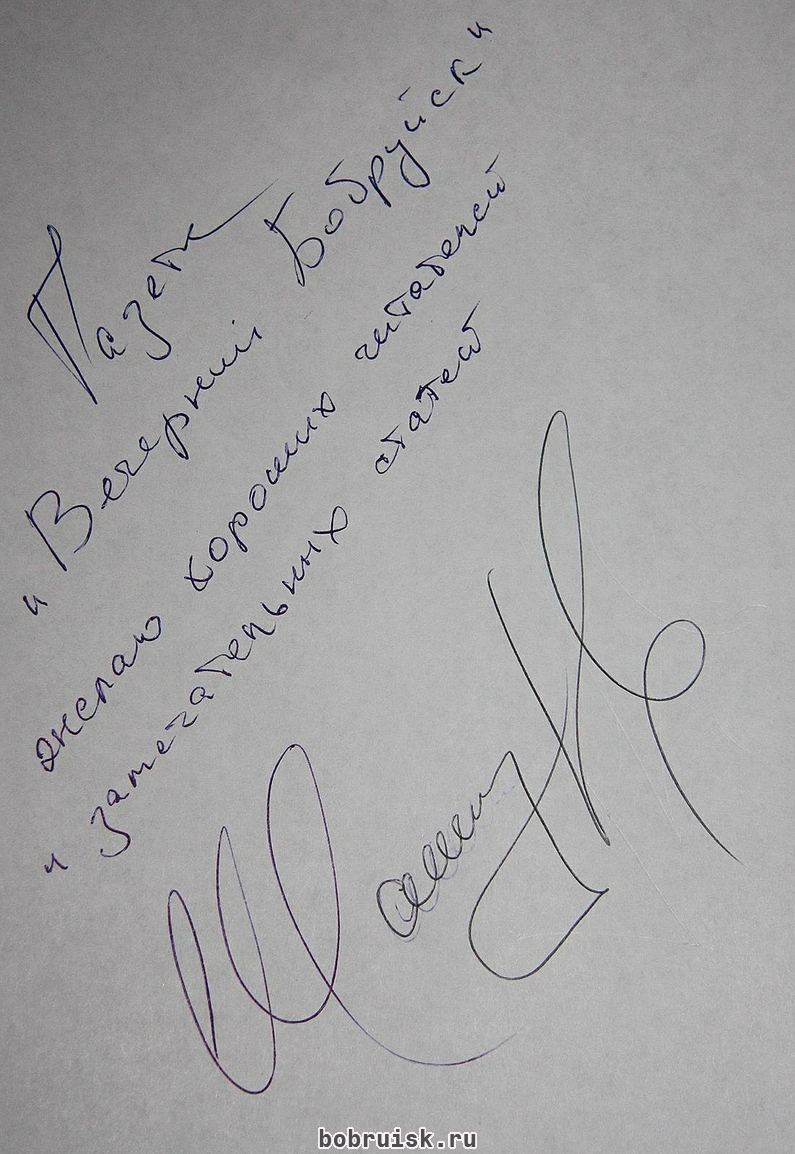 Газете
"Вечерний Бобруйск"
желаю хороших читателей
и замечательных статей
bobruisk.ru